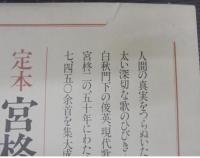 人間の真実をつらぬいた
太い深切な歌のひびき
白秋門下の俊英、現代歌
宮柊二の、五十年にわた
七四五〇余首を集大成
定本
宮柊